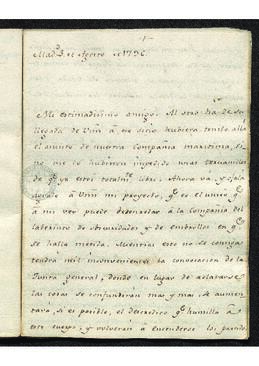 -1-
Madrid. Agosto de 1796.
Mi estimadisimo amigo. Al otro dia de su
llegada de Vm. á ese sitio hubiera tenido allá
el asunto de nuestra Compañia maritima, si
no me lo hubieran impedido unas tercianillas
de qe. ya estoi totalmte. libre. Ahora va, y ojala
agrade á Vm. mi proyecto, qe. es el unico qe.
á mi ver puede desenredar á la Compañia del
laberinto de obscuridades y de embrollos en qe.
se halla metida. Mientras esto no se consiga
tendrá mil inconvenientes la convocacion de la
Junta general, donde en lugar de aclararse
las cosas se confundirán mas y mas. Se aumen-
tará, si es posible, el descredito qe. humilla á
este cuerpo, y volverán á encenderse los partidos